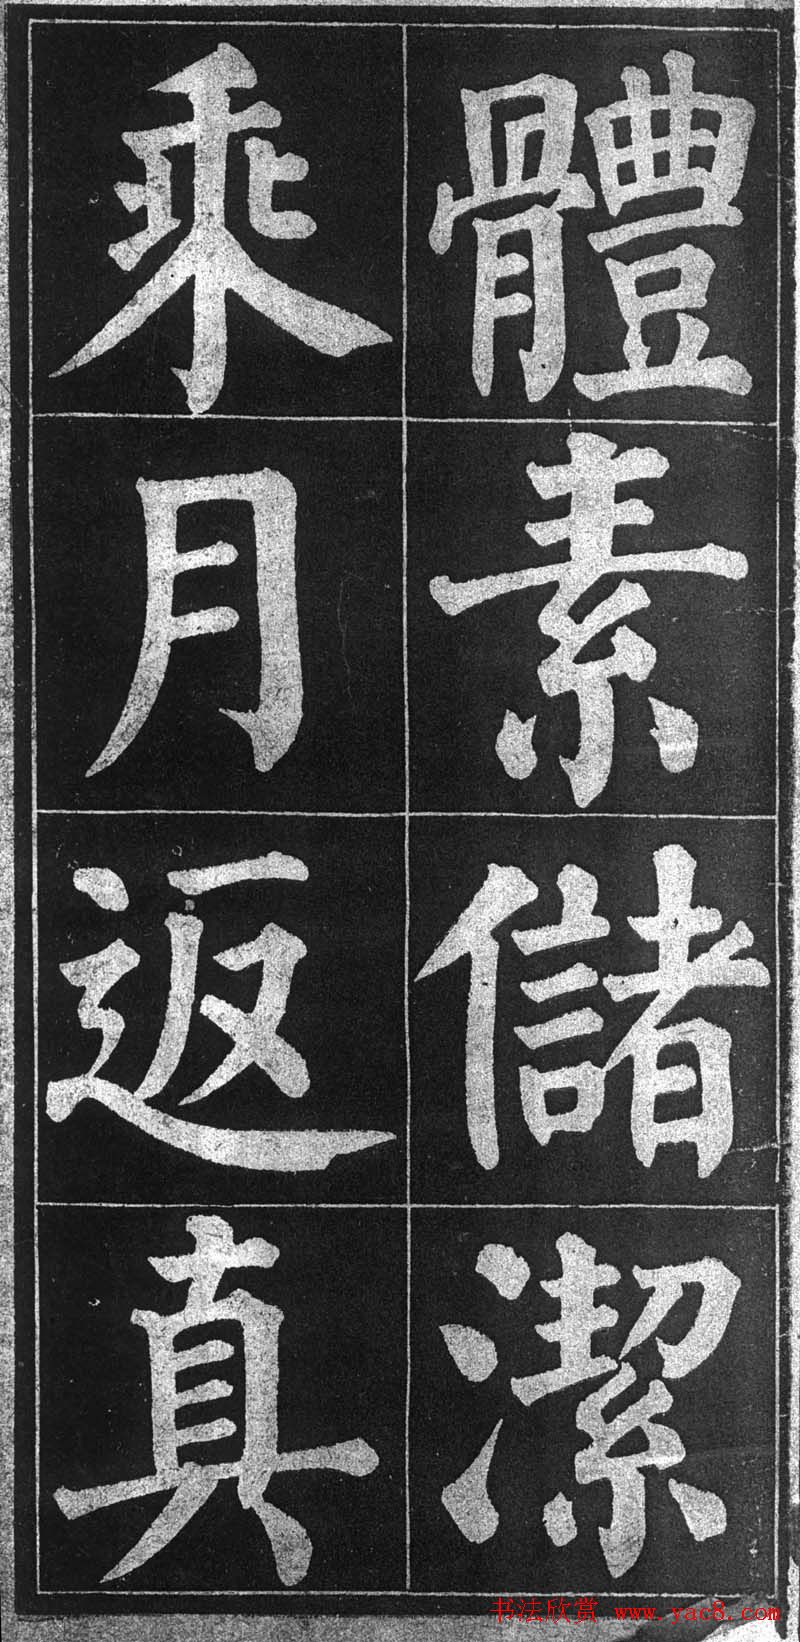 體素儲潔
乘月返真
书法欣赏 www.yac8.com